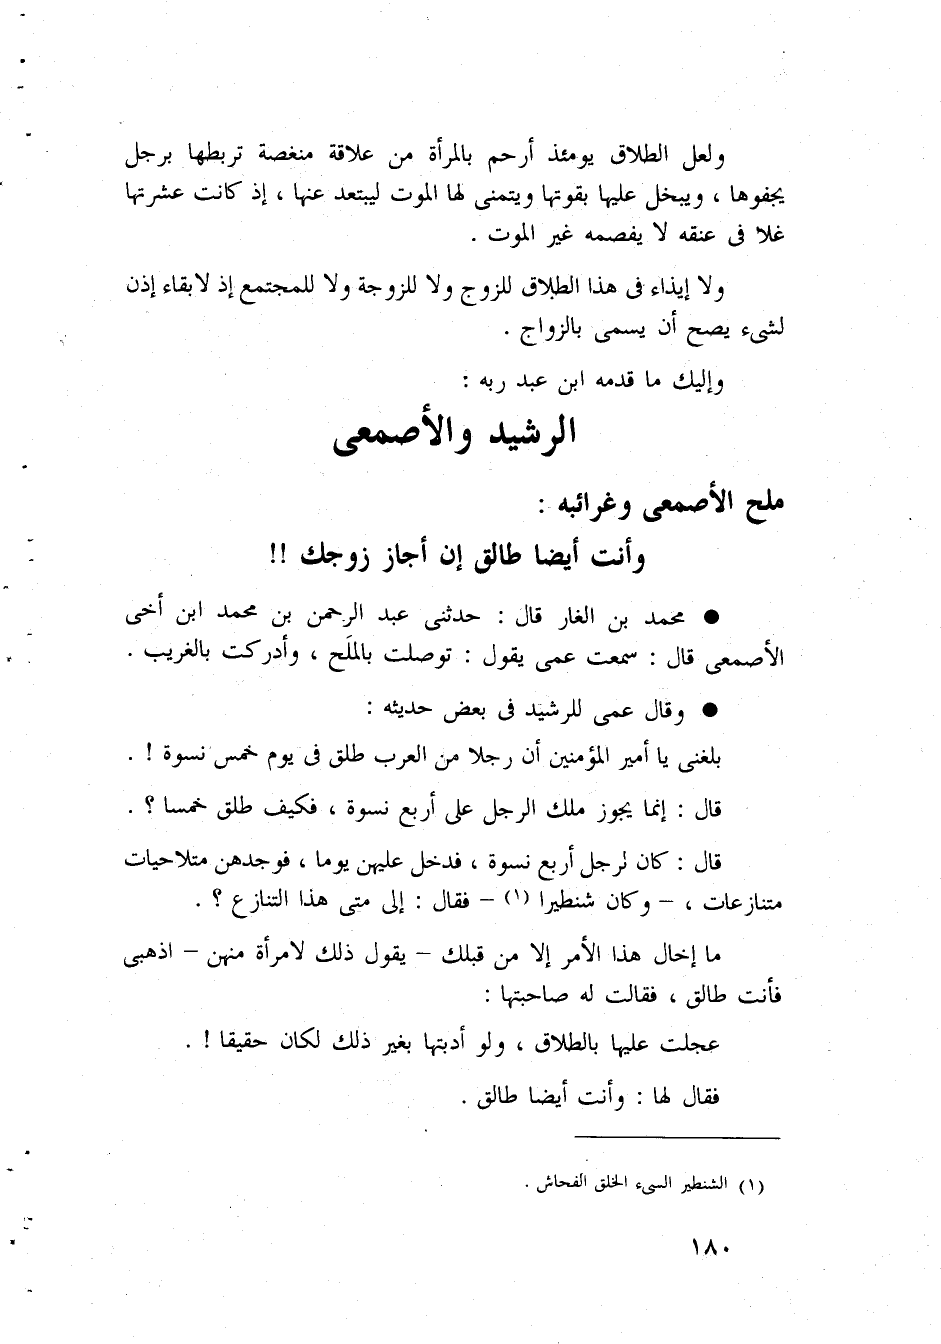 ولعل الطلاق يومئذ أرحم بالمرأة من علاقة منغصة تربطها برجل
يجفوها ، ويبخل عليها بقوتها ويتمنى لها الموت ليبتعد عنها ، إذ كانت عشرتها
غلا فى عنقه لا يفصمه غير الموت .
ولا إيذاء فى هذا الطلاق للزوج ولا للزوجة ولا للمجتمع إذ لابقاء إذن
لشىء يصح أن يسمى بالزواج .
وإليك ما قدمه ابن عبد ربه :
الرشيد والأصمعى
ملح الأصمعى وغرائبه :
وأنت أيضا طالق إن أجاز زوجك !!
● محمد بن الغار قال : حدثنى عبد الرحمن بن محمد ابن أخى
الأصمعى قال : سمعت عمى يقول : توصلت بالملَح ، وأدركت بالغريب .
● وقال عمى للرشيد فى بعض حديثه :
بلغنى يا أمير المؤمنين أن رجلا من العرب طلق فى يوم خمس نسوة ! .
قال : إنما يجوز ملك الرجل على أربع نسوة ، فكيف طلق خمسا ؟ .
قال : كان لرجل أربع نسوة ، فدخل عليهن يوما ، فوجدهن متلاحيات
متنازعات ، – وكان شنطيرا (١) – فقال : إلى متى هذا التنازع ؟ .
ما إخال هذا الأمر إلا من قبلك – يقول ذلك لامرأة منهن – اذهبى
فأنت طالق ، فقالت له صاحبتها :
عجلت عليها بالطلاق ، ولو أدبتها بغير ذلك لكان حقيقا ! .
فقال لها : وأنت أيضا طالق .
(١) الشنطير السىء الخلق الفحاش .
١٨٠